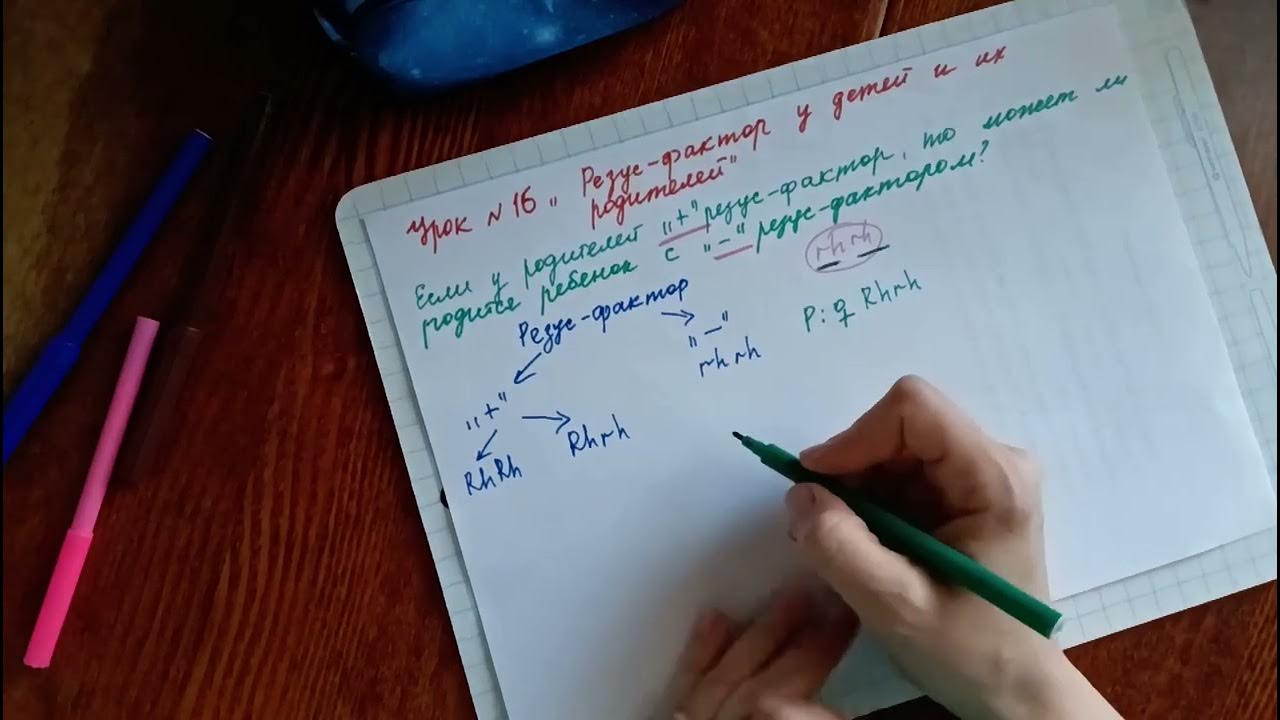 Урок N 16 „ Резус-фактор у детей и их
родителей"
Если у родителей „+" резус-фактор, то может ли
родится ребенок с „−" резус-фактором?
rh rh
Резус-фактор
P: ♀ Rhrh
„−"
rh rh
„+"
Rhrh
RhRh